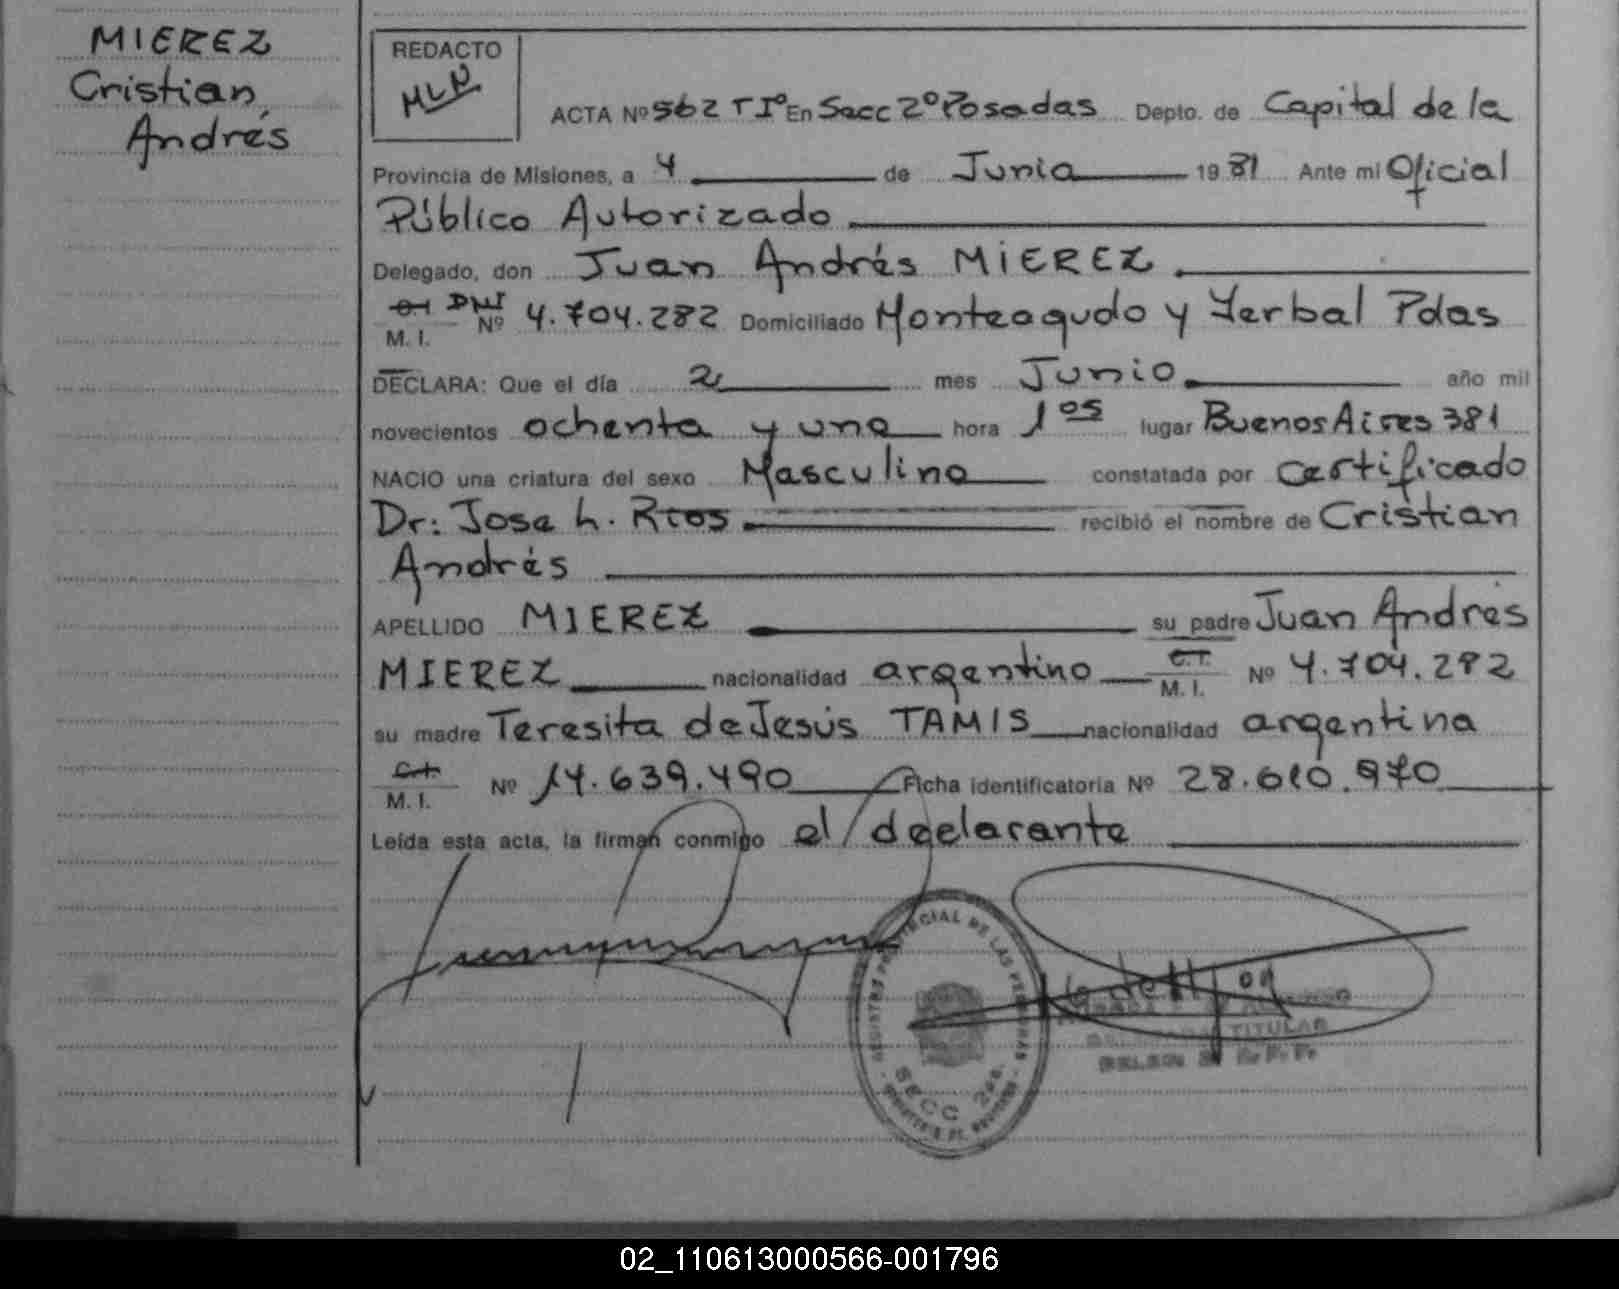 MIEREZ
Cristian
Andrés
REDACTO
MLN
ACTA Nº 562 T Iº En Secc 2º Posadas Depto. de Capital de la
Provincia de Misiones, a 4 de Junio 19 81 Ante mi Oficial
Público Autorizado
Delegado, don Juan Andrés MIEREZ
C.I. DNI
M. I. Nº 4.704.282 Domiciliado Monteagudo y Yerbal Pdas
DECLARA: Que el día 2 mes Junio año mil
novecientos ochenta y uno hora 1 05 lugar Buenos Aires 381
NACIO una criatura del sexo Masculino constatada por Certificado
Dr: Jose L. Rios recibió el nombre de Cristian
Andrés
APELLIDO MIEREZ su padre Juan Andrés
MIEREZ nacionalidad argentino C.I. M. I. Nº 4.704.282
su madre Teresita de Jesús TAMIS nacionalidad argentina
C.I. M. I. Nº 14.639.490 Ficha identificatoria Nº 28.610.970
Leída esta acta, la firman conmigo el declarante
REGISTRO PROVINCIAL DE LAS PERSONAS
SECC 2da.
TITULAR
02_110613000566-001796